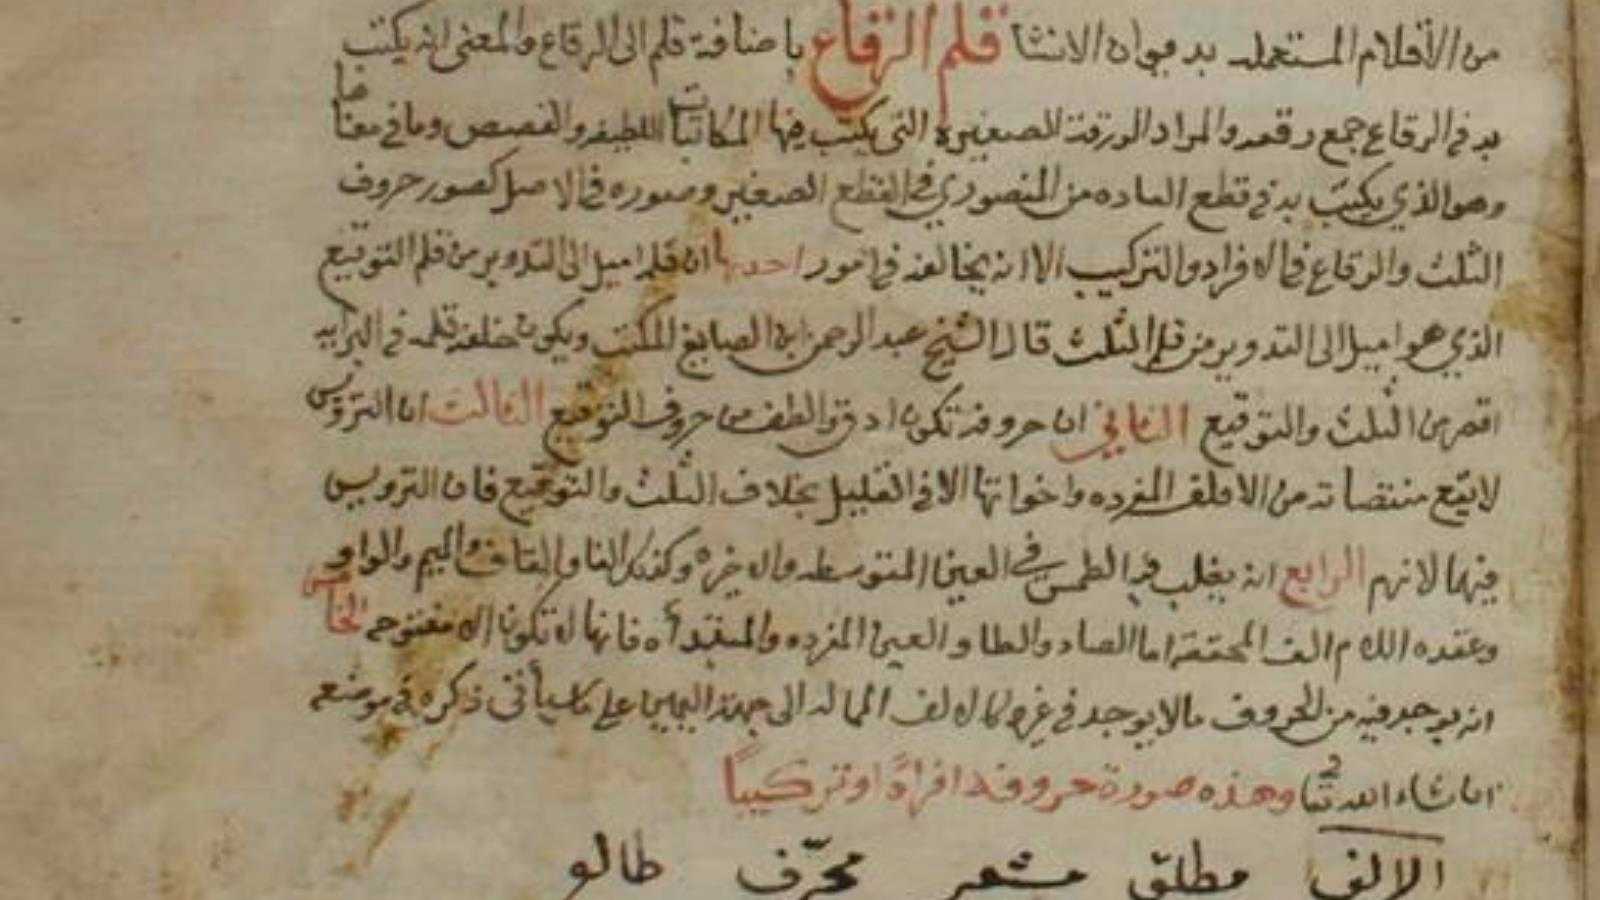 من الأقلام المستعمله بديوان الانشا قلم الرقاع باضافة قلم الى الرقاع والمعنى انه يكتب
به في الرقاع جمع رقعه والمراد الورقة الصغيره التي يكتب فيها المكاتبات اللطيفه والقصص وما في معناها
وهو الذي يكتب به في قطع العاده من المنصوري في القطع الصغير وصوره في الاصل كصور حروف
الثلث والرقاع في الافراد والتركيب الا انه يخالفه في امور احدها ان قلمه اميل الى التدوير من قلم التوقيع
الذي هو اميل الى التدوير من قلم الثلث قال الشيخ عبد الرحمن ابن الصايغ المكتب ويكون جلفة قلمه في البرايه
اقصر من الثلث والتوقيع الثاني ان حروفه تكون ادق والطف من حروف التوقيع الثالث ان الترويس
لا يقع منتصباته من الالف المفرده واخواتها الا في القليل بخلاف الثلث والتوقيع فان الترويس
فيهما لازم الرابع انه يغلب فيه الطمس في العين المتوسطه والاخيره وكذلك الفا والقاف والميم والواو
وعقده اللام الف المحققة اما الصاد والطا والعين المفرده والمبتدأه فانها لا تكون الا مفتوحه الخامس
انه يوجد فيه من الحروف مالا يوجد في غيره كالالف الممالة الى جهة اليمين على ما سيأتي ذكره في موضعه
ان شاء الله تعا وهذه صورة حروفه افرادًا وتركيبًا
الالف مطلق مشعر محرّف طالو